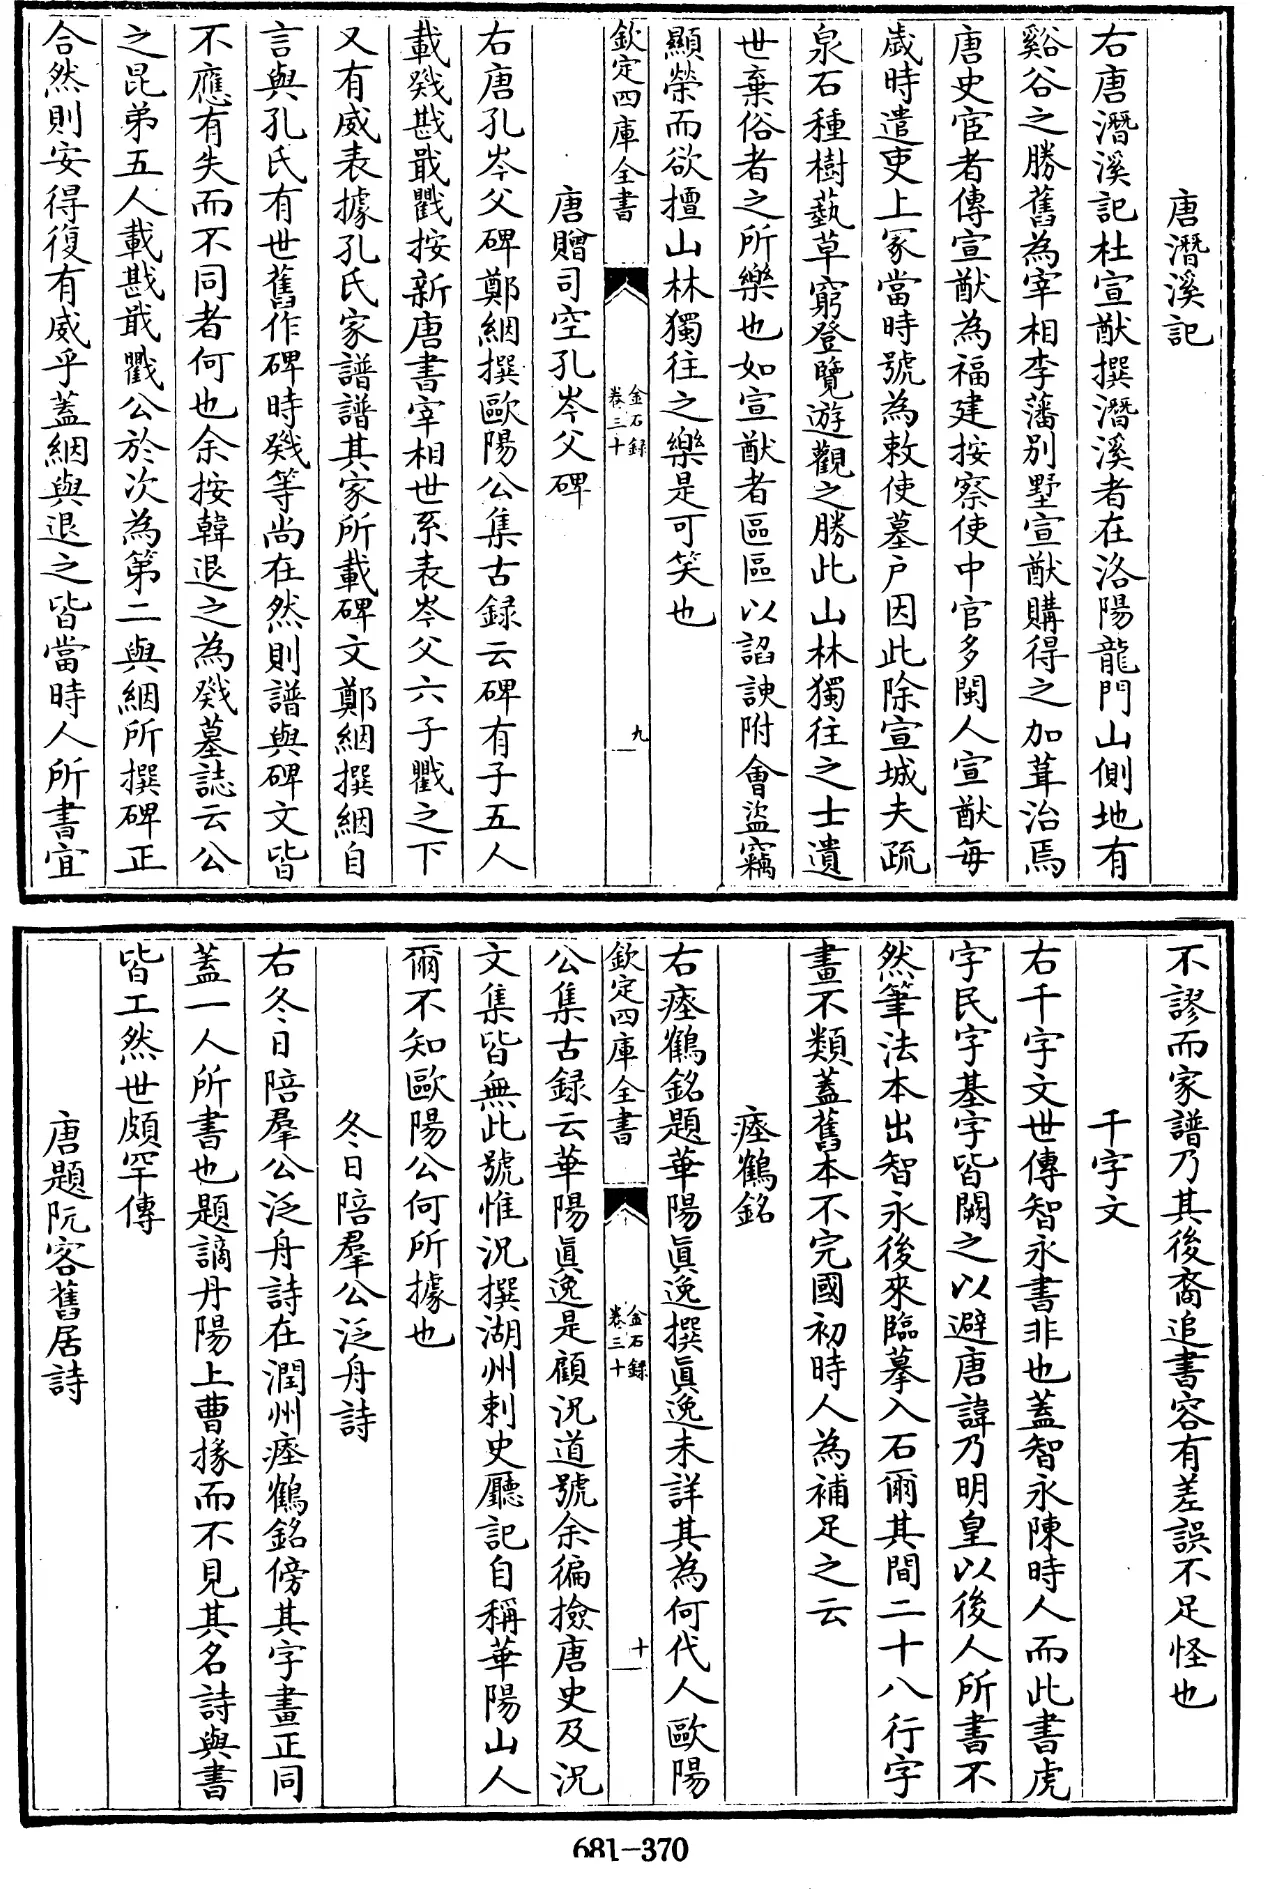 唐潛溪記
右唐潛溪記杜宣猷撰潛溪者在洛陽龍門山側地有
谿谷之勝舊為宰相李藩別墅宣猷購得之加葺治焉
唐史宦者傳宣猷為福建按察使中官多閩人宣猷每
歲時遣吏上冢當時號為敕使墓戶因此除宣城夫疏
泉石種樹藝草窮登覽遊觀之勝此山林獨往之士遺
世棄俗者之所樂也如宣猷者區區以諂諛附會盜竊
顯榮而欲擅山林獨往之樂是可笑也
欽定四庫全書
金石錄
卷三十
九
唐贈司空孔岑父碑
右唐孔岑父碑鄭絪撰歐陽公集古録云碑有子五人
載戣戡戢戵按新唐書宰相世系表岑父六子戵之下
又有威表據孔氏家譜譜其家所載碑文鄭絪撰絪自
言與孔氏有世舊作碑時戣等尚在然則譜與碑文皆
不應有失而不同者何也余按韓退之為戣墓誌云公
之昆弟五人載戡戢戵公於次為第二與絪所撰碑正
合然則安得復有威乎蓋絪與退之皆當時人所書宜
不謬而家譜乃其後裔追書容有差誤不足怪也
千字文
右千字文世傳智永書非也蓋智永陳時人而此書虎
字民字基字皆闕之以避唐諱乃明皇以後人所書不
然筆法本出智永後來臨摹入石爾其間二十八行字
畫不類蓋舊本不完國初時人為補足之云
瘞鶴銘
右瘞鶴銘題華陽真逸撰真逸未詳其為何代人歐陽
欽定四庫全書
金石錄
卷三十
十
公集古録云華陽真逸是顧況道號余徧撿唐史及況
文集皆無此號惟況撰湖州刺史廳記自稱華陽山人
爾不知歐陽公何所據也
冬日陪羣公泛舟詩
右冬日陪羣公泛舟詩在潤州瘞鶴銘傍其字畫正同
蓋一人所書也題謫丹陽上曹掾而不見其名詩與書
皆工然世頗罕傳
唐題阮客舊居詩
681-370